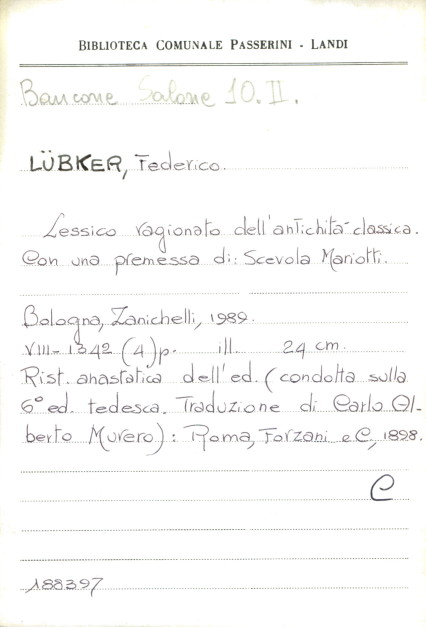 BIBLIOTECA COMUNALE PASSERINI - LANDI
Bancone Salone 10. II.
LÜBKER, Federico.
Lessico ragionato dell'antichità classica.
Con una premessa di: Scevola Mariotti.
Bologna, Zanichelli, 1989.
VIII-1342 (4) p. ill. 24 cm.
Rist. anastatica dell'ed. (condotta sulla
6° ed. tedesca. Traduzione di Carlo Al-
berto Murero): Roma, Forzani e C, 1898.
C
188397